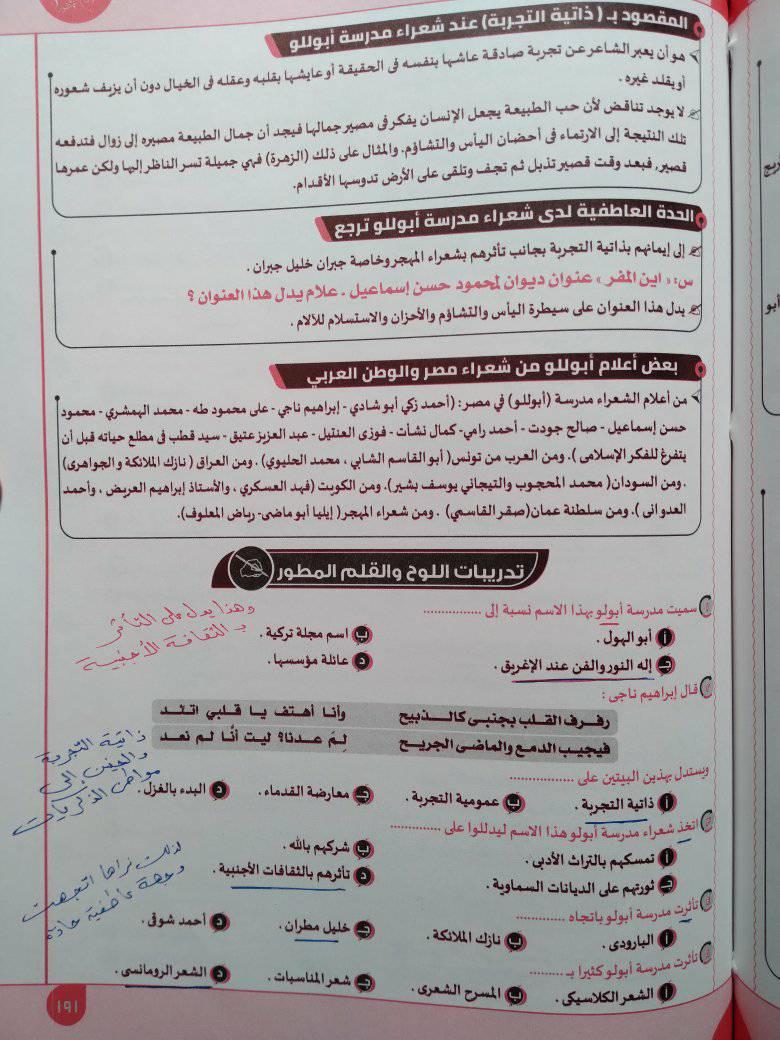 المقصود بـ ( ذاتية التجربة) عند شعراء مدرسة أبوللو
هو أن يعبر الشاعر عن تجربة صادقة عاشها بنفسه فى الحقيقة أو عايشها بقلبه وعقله فى الخيال دون أن يزيف شعوره
أو يقلد غيره .
لا يوجد تناقض لأن حب الطبيعة يجعل الإنسان يفكر فى مصير جمالها فيجد أن جمال الطبيعة مصيره إلى زوال فتدفعه
تلك النتيجة إلى الارتماء فى أحضان اليأس والتشاؤم. والمثال على ذلك (الزهرة) فهي جميلة تسر الناظر إليها ولكن عمرها
قصير، فبعد وقت قصير تذبل ثم تجف وتلقى على الأرض تدوسها الأقدام.
الحدة العاطفية لدى شعراء مدرسة أبوللو ترجع
إلى إيمانهم بذاتية التجربة بجانب تأثرهم بشعراء المهجر وخاصة جبران خليل جبران .
س: « اين المفر » عنوان ديوان لمحمود حسن إسماعيل . علام يدل هذا العنوان ؟
يدل هذا العنوان على سيطرة اليأس والتشاؤم والأحزان والاستسلام للآلام .
بعض أعلام أبوللو من شعراء مصر والوطن العربي
من أعلام الشعراء مدرسة (أبوللو) في مصر: (أحمد زكي أبو شادي - إبراهيم ناجي - على محمود طه - محمد الهمشري - محمود
حسن إسماعيل - صالح جودت - أحمد رامي- كمال نشأت - فوزى العنتيل - عبد العزيز عتيق - سيد قطب فى مطلع حياته قبل أن
يتفرغ للفكر الإسلامى ). ومن العرب من تونس( أبو القاسم الشابي ، محمد الحليوي) . ومن العراق ( نازك الملائكة و الجواهرى)
. ومن السودان( محمد المحجوب والتيجاني يوسف بشير). ومن الكويت (فهد العسكري ، والأستاذ إبراهيم العريض ، وأحمد
العدوانى ). ومن سلطنة عمان(صقر القاسمي) . ومن شعراء المهجر ( إيليا أبو ماضى- رياض المعلوف).
تدريبات اللوح والقلم المطور
سميت مدرسة أبولو بهذا الاسم نسبة إلى ................
وهذا يدل على التأثر
بـ الثقافة الأجنبية
أ أبو الهول .
ب اسم مجلة تركية .
جـ إله النور والفن عند الإغريق .
د عائلة مؤسسها .
قال إبراهيم ناجى :
رفرف القلب بجنبى كالذبيح وأنا أهتف يا قلبي اتئد
فيجيب الدمع والماضى الجريح لمَ عدنا؟ ليت أنَّا لم نعد
ذاتية التجربة
والحنين إلى
مواطن الذكريات
ويستدل بهذين البيتين على ................
أ ذاتية التجربة . ب عمومية التجربة . جـ معارضة القدماء . د البدء بالغزل .
اتخذ شعراء مدرسة أبولو هذا الاسم ليدللوا على ................
أ تمسكهم بالتراث الأدبى .
ب شركهم بالله .
جـ ثورتهم على الديانات السماوية .
د تأثرهم بالثقافات الأجنبية .
لذلك نراها اتجهت
وجهة عاطفية حادة
تأثرت مدرسة أبولو باتجاه ................
أ البارودى . ب نازك الملائكة . جـ خليل مطران . د أحمد شوقى .
تأثرت مدرسة أبولو كثيرا بـ ..........
أ الشعر الكلاسيكى . ب المسرح الشعرى . جـ شعر المناسبات . د الشعر الرومانسى .
١٩١
أبو